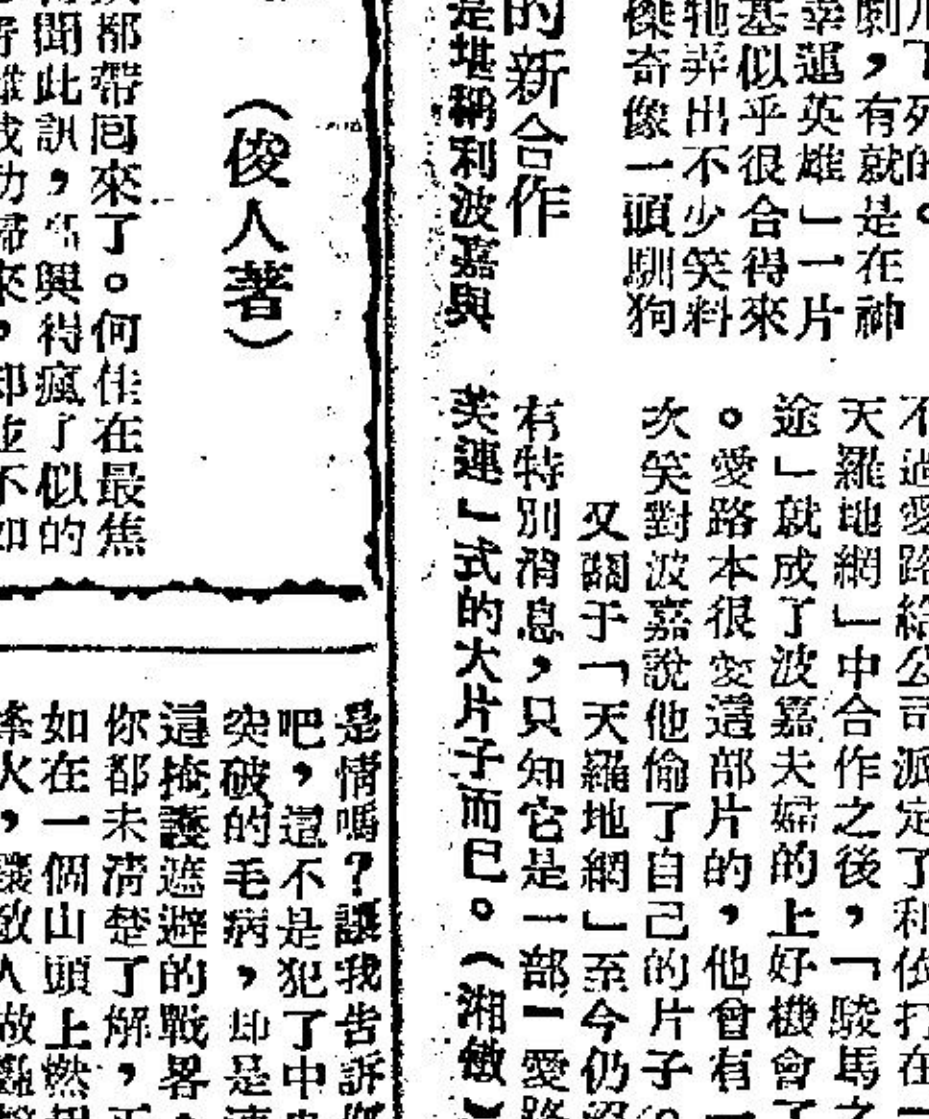 劇，有就是在神
幸運英雄」一片
基似乎很合得來
牠弄出不少笑料
傑奇像一頭馴狗
的新合作
是堪稱利波嘉與
不過愛路給公司派定了利依打在
天羅地網」中合作之後，「駿馬
途」就成了波嘉夫婦的上好機會了
。愛路本很愛這部片的，他會有一
次笑對波嘉說他偷了自己的片子
又關于「天羅地網」至今仍
有特別消息，只知它是一部「愛路
芙連」式的大片子而已。（湘敏）
（俊人著）
都帶囘來了。何佳在最焦
聞此訊，高興得瘋了似的
成功歸來，却並不如
是情嗎？讓我告訴你
吧，還不是犯了中
突破的毛病，却是
這掩護遮避的戰畧，
你都未清楚了解，正
如在一個山頭上燃
火，讓敵人做